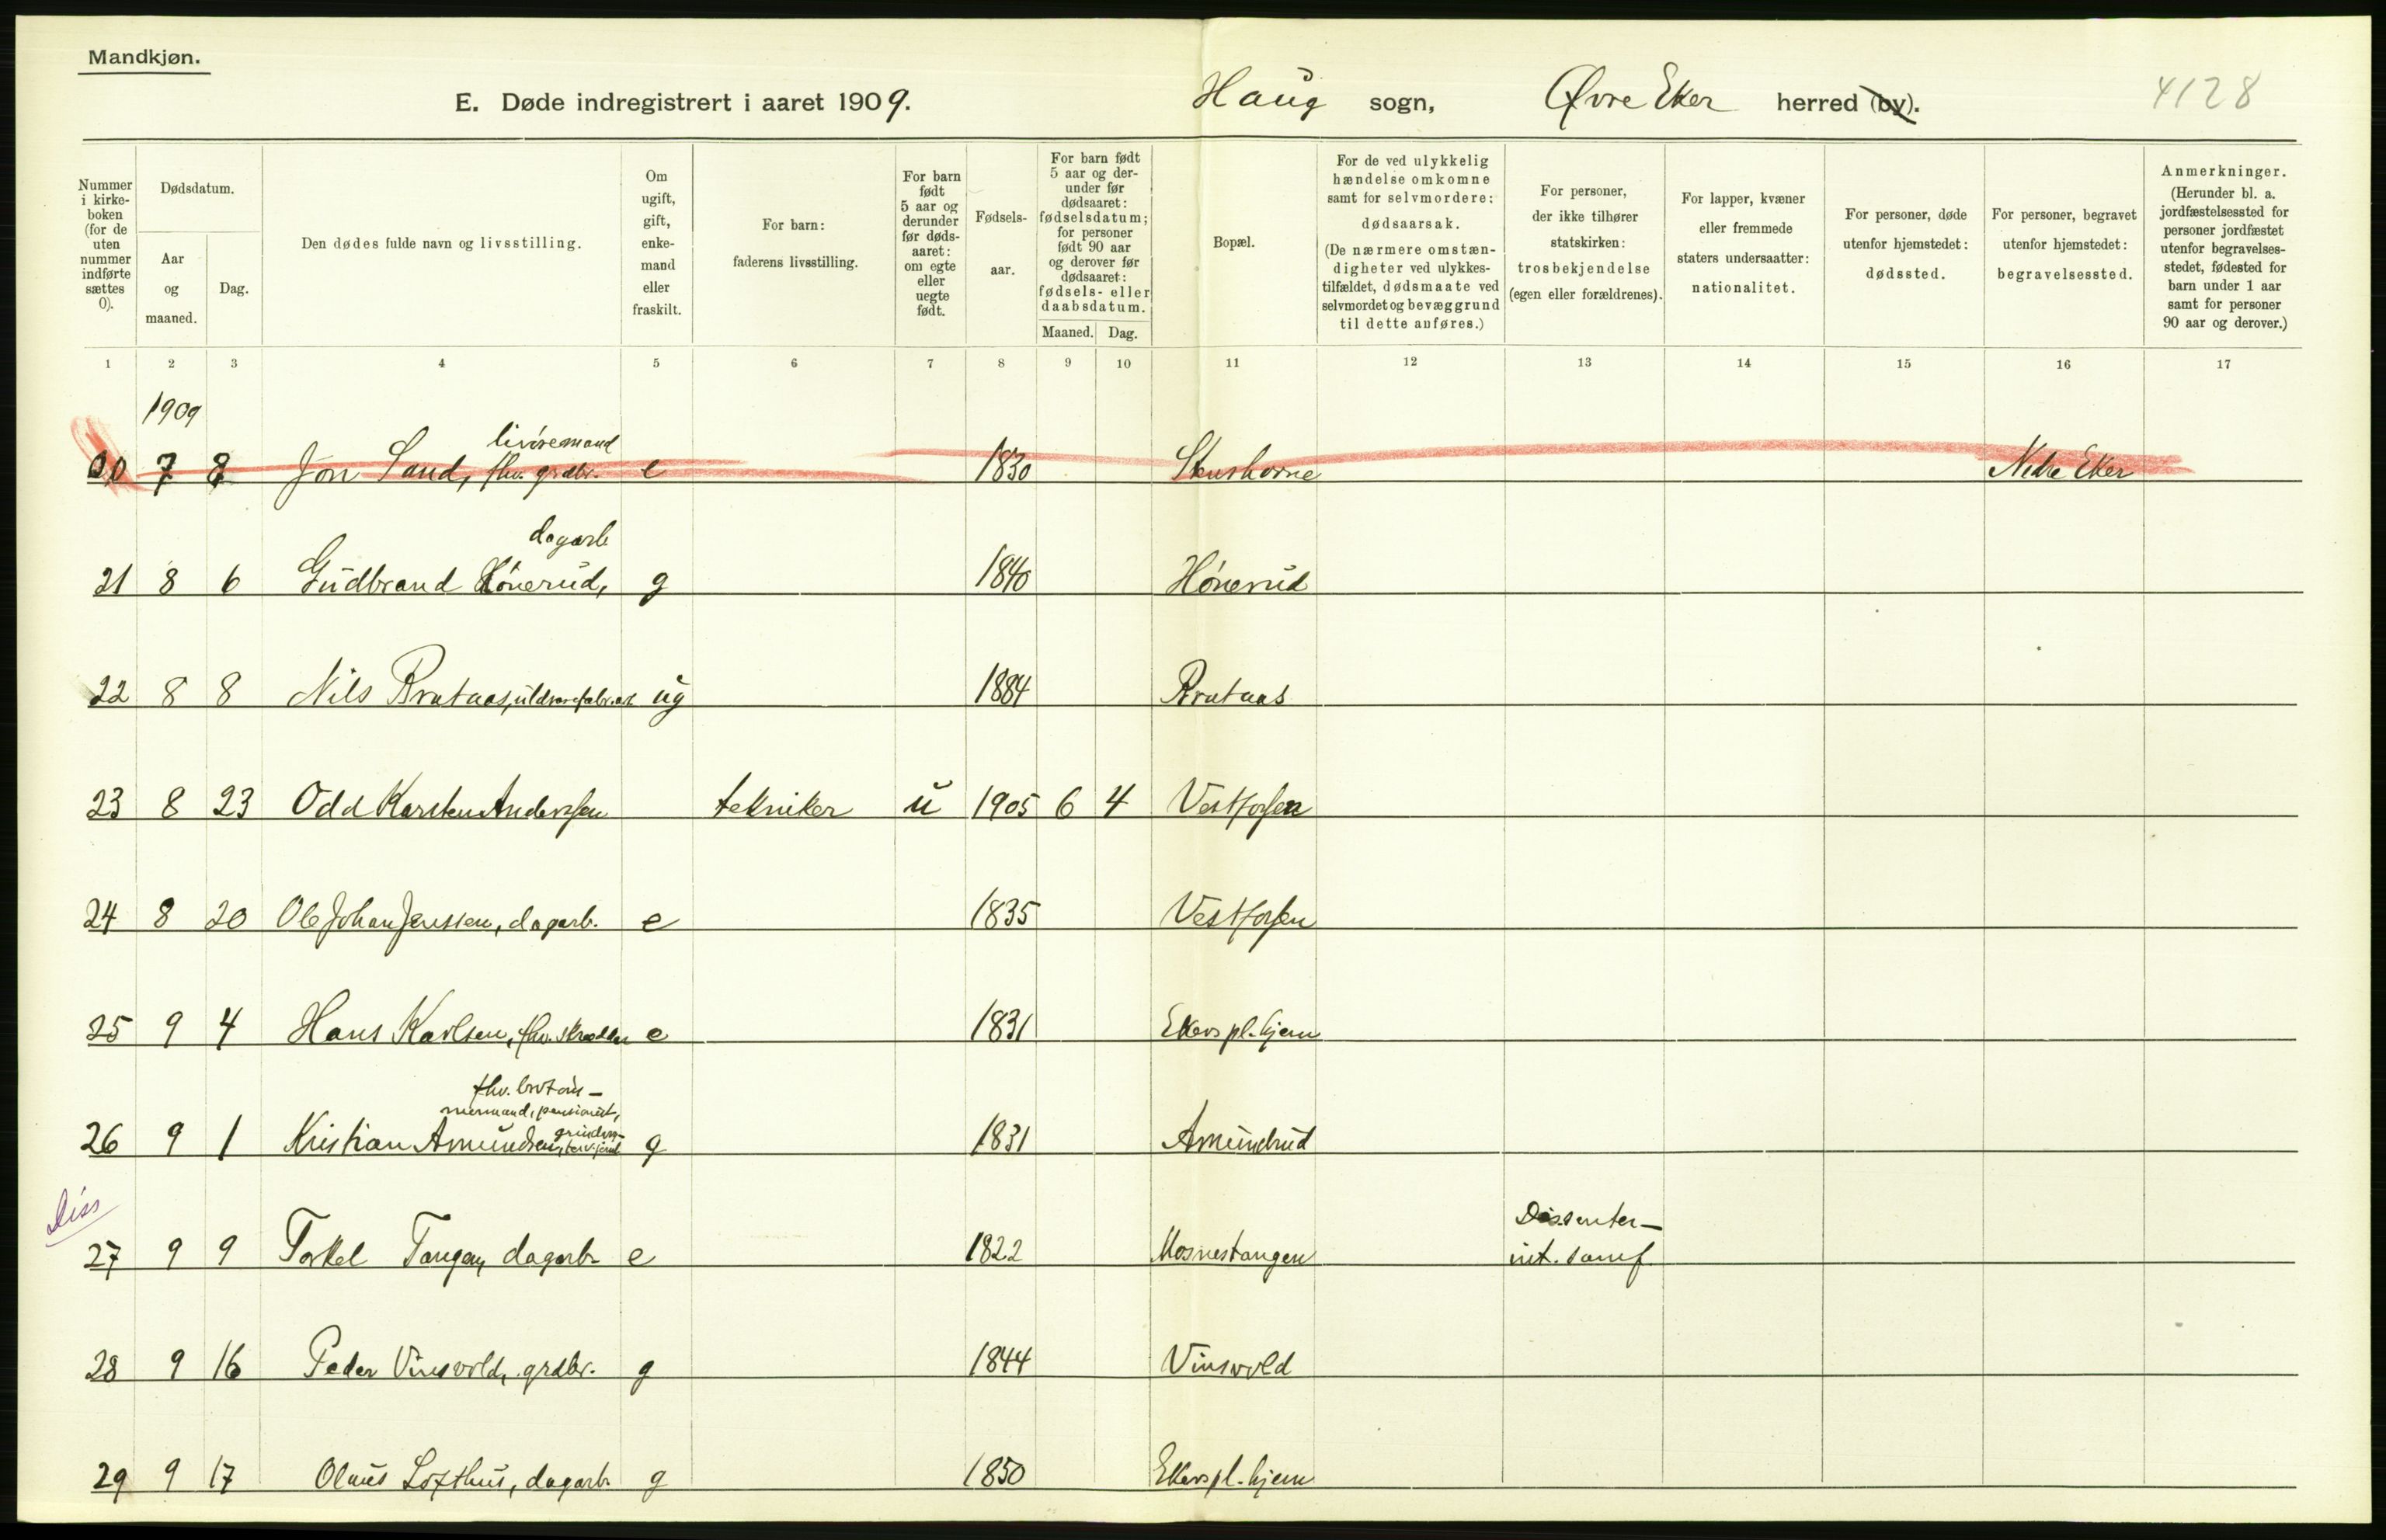 Mandkjøn.
E. Døde indregistrert i aaret 1909. Haug sogn, Øvre Eker herred (by). 4128
Nummer i kirkeboken (for de uten nummer indførte sættes 0).
Dødsdatum.
Aar og maaned.
Dag.
Den dødes fulde navn og livsstilling.
Om ugift, gift, enkemand eller fraskilt.
For barn: faderens livsstilling.
For barn født 5 aar og derunder før dødsaaret: om egte eller uegte født.
Fødselsaar.
For barn født 5 aar og derunder før dødsaaret: fødselsdatum; for personer født 90 aar og derover før dødsaaret: fødsels- eller daabsdatum.
Maaned. Dag.
Bopæl.
For de ved ulykkelig hændelse omkomne samt for selvmordere: dødsaarsak. (De nærmere omstændigheter ved ulykkestilfældet, dødsmaate ved selvmordet og bevæggrund til dette anføres.)
For personer, der ikke tilhører statskirken: trosbekjendelse (egen eller forældrenes).
For lapper, kvæner eller fremmede staters undersaatter: nationalitet.
For personer, døde utenfor hjemstedet: dødssted.
For personer, begravet utenfor hjemstedet: begravelsessted.
Anmerkninger. (Herunder bl. a. jordfæstelsessted for personer jordfæstet utenfor begravelsesstedet, fødested for barn under 1 aar samt for personer 90 aar og derover.)
1 2 3 4 5 6 7 8 9 10 11 12 13 14 15 16 17
1909
livöremand
7 8 Jon Sand, fhv. grdbr. e 1830 Stenshorne Nedre Eker
dagarb
21 8 6 Gudbrand Hönerud, g 1840 Hönerud
22 8 8 Nils Brataas, uldvarefabr.arb ug 1884 Brataas
23 8 23 Odd Karsten Anderssen tekniker u 1905 6 4 Vestfossen
24 8 20 Ole Johan Jenssen, dagarb. e 1835 Vestfossen
25 9 4 Hans Karlsen, fhv. skrædder e 1831 Ekers pl.hjem
fhv.
mermand, pensionist,
26 9 1 Kristian Amundsen, g 1831 Amundrud
Diss
Dissenter-
27 9 9 Torkel Tangen, dagarb. e 1822 Mosnestangen int. samf.
28 9 16 Peder Vinsvold, grdbr. g 1844 Vinsvold
29 9 17 Olaus Lofthus, dagarb. g 1850 Ekers pl.hjem